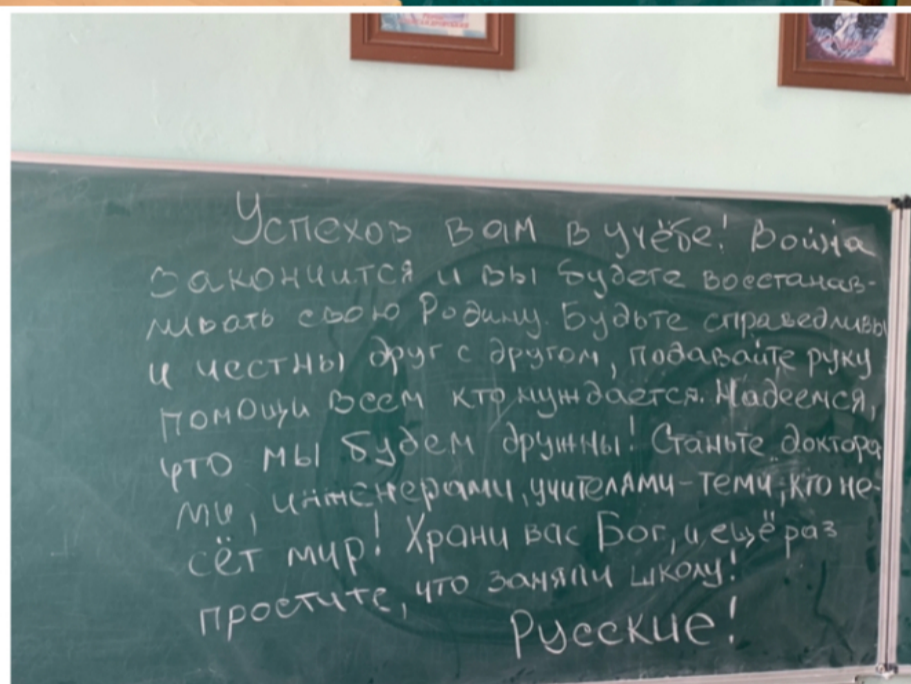 Успехов вам в учёбе! Война
закончится и вы будете восстанав-
ливать свою Родину. Будьте справедливы
и честны друг с другом, подавайте руку
помощи всем кто нуждается. Надеемся,
что мы будем дружны! Станьте доктора
ми, инженерами, учителями - теми, кто не-
сёт мир! Храни вас Бог, и ещё раз
простите, что заняли школу!
Русские!